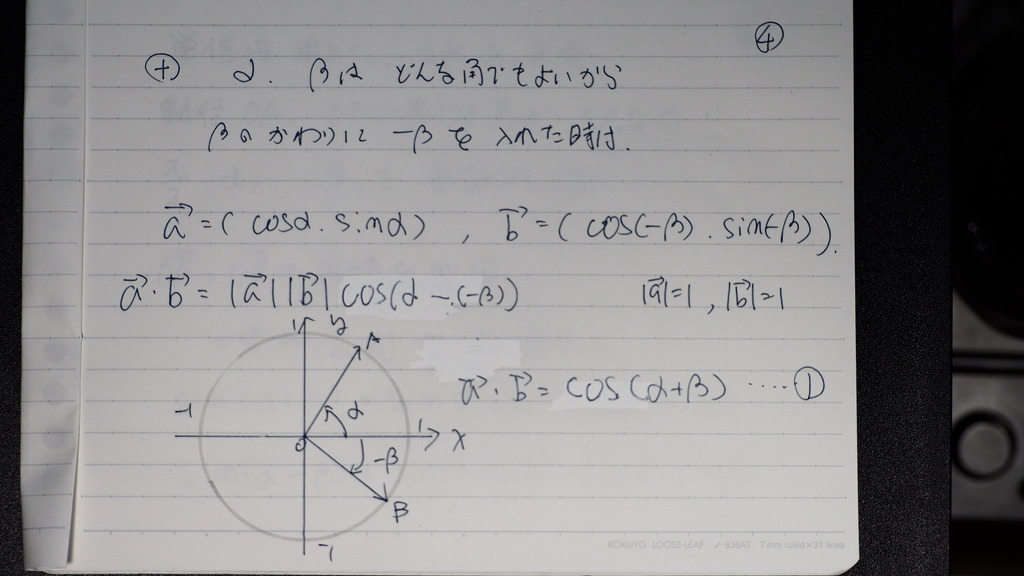 ④
⊕ α. βは どんな角でもよいから
βのかわりに -βを 入れた時は.
a⃗=( cosα. sinα) , b⃗=( cos(-β). sin(-β)).
a⃗・b⃗ = |a⃗||b⃗| cos(α-(-β)) |a⃗|=1 , |b⃗|=1
1 y A
a⃗・b⃗ = cos(α+β) ····①
-1 α 1 x
0 -β
B
-1
KOKUYO LOOSE-LEAF ノ-836AT 7 mm ruled×31 lines